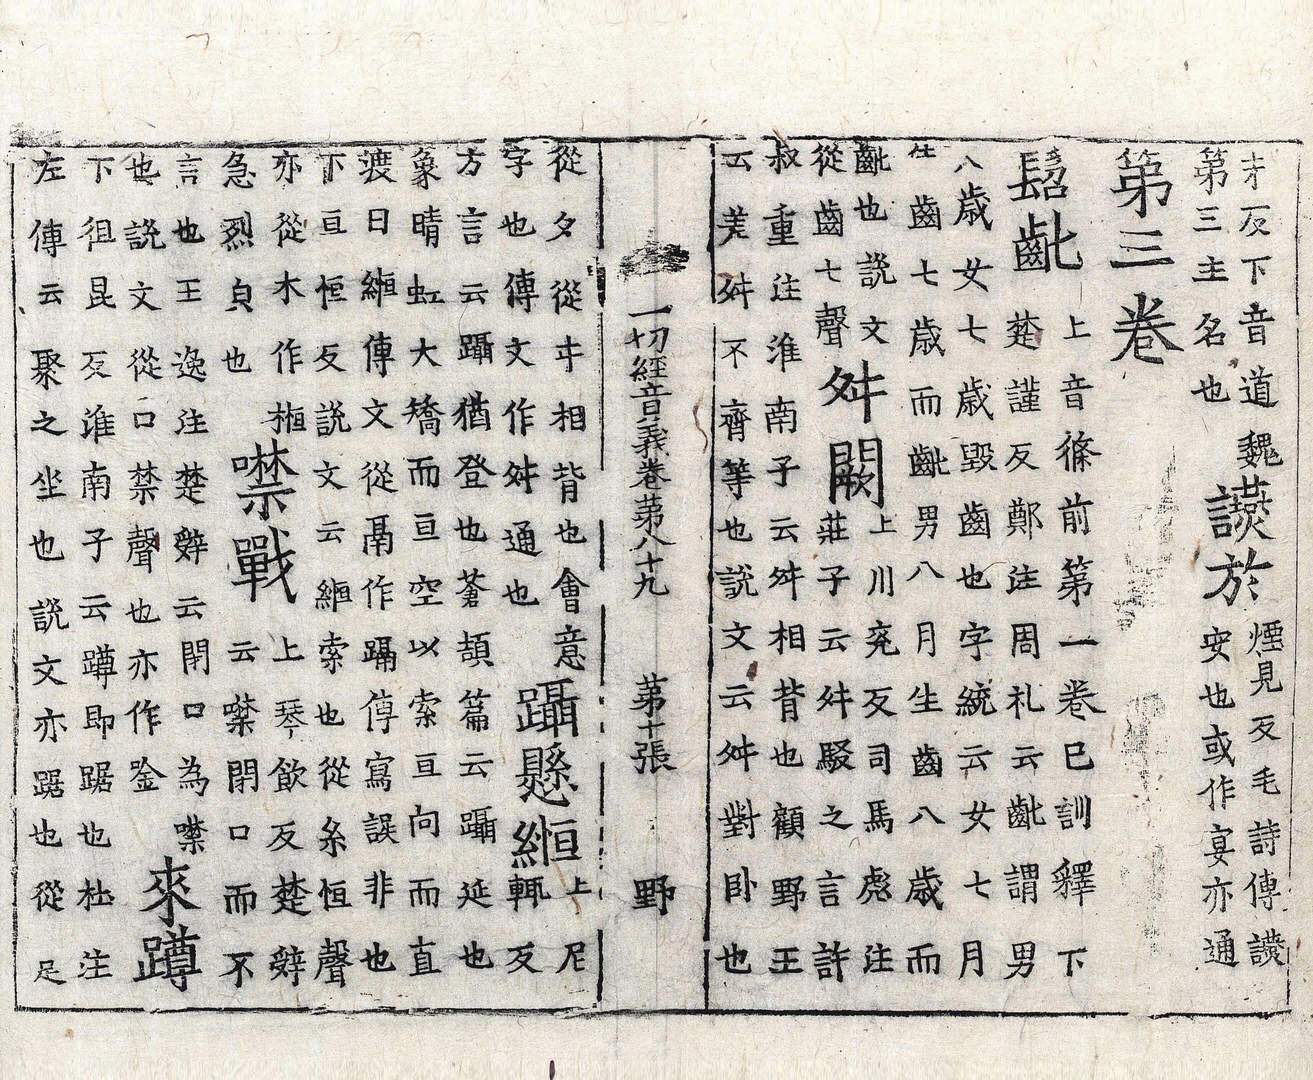 才反下音道魏第三主名也讌於煙見反毛詩傳讌安也或作宴亦通
第三卷
髫齓上音條前第一卷已訓釋下楚謹反鄭注周礼云齓謂男
八歳女七歳毀齒也字統云女七月生齒七歳而齓男八月生齒八歳而
齓也說文從齒七聲舛闕上川兖反司馬彪注莊子云舛駁之言許
叔重注淮南子云舛相背也顧野王云差舛不齊等也說文云舛對卧也
一切經音義卷第八十九 第十張 野
從夕從㐄相背也會意字也傳文作舛通也躡懸縆上尼輒反
方言云躡猶登也蒼頡篇云躡延也象晴虹大矯而亘空以索亘向而直
渡曰縆傳文從鬲作𨄔傳寫誤非也下亘恒反說文云縆索也從糸恒聲
亦從木作㮓急烈皃也噤戰上琴飲反楚辭云噤閉口而不
言也王逸注楚辭云閉口為噤也說文從口禁聲也亦作唫來蹲
下徂昆反淮南子云蹲即踞也杜注左傳云聚之坐也說文亦踞也從足